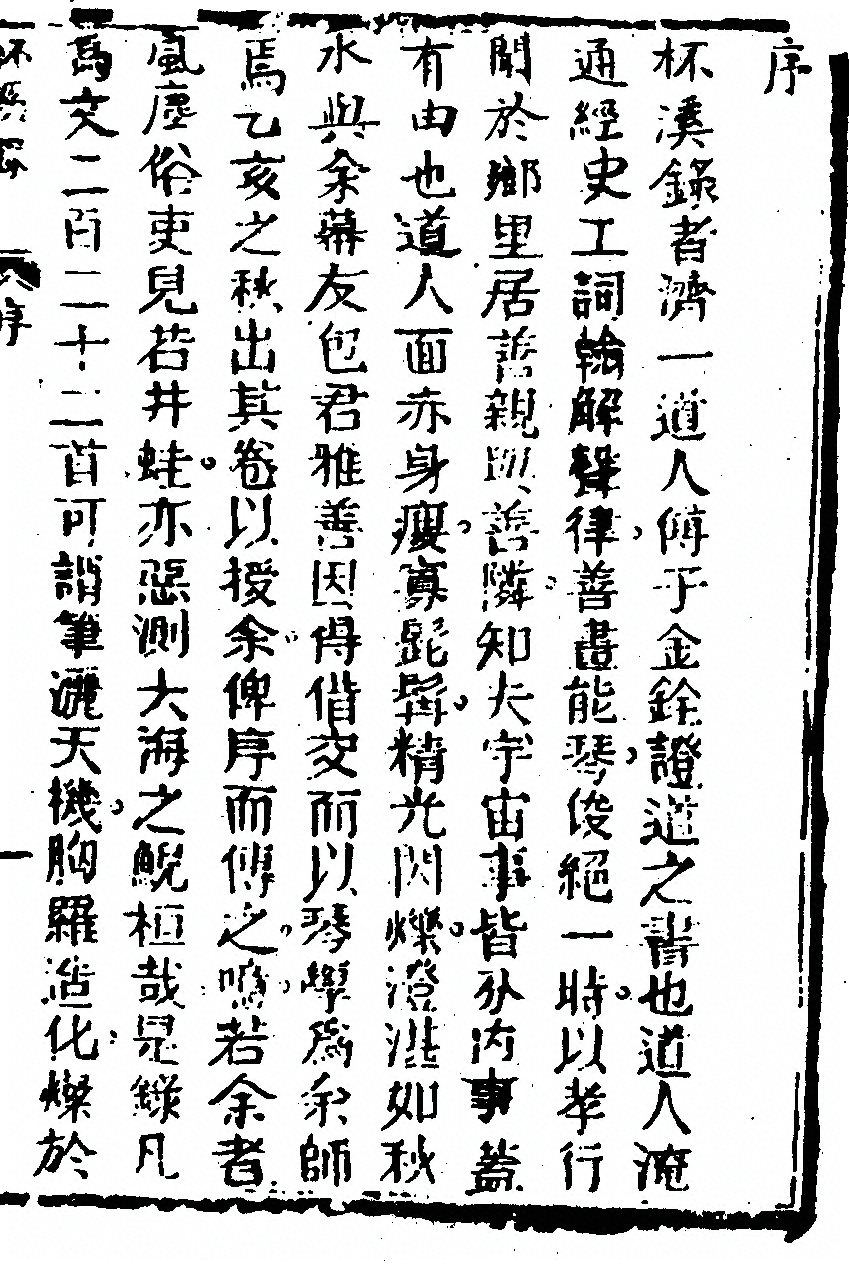 序
杯溪錄者濟一道人傅子金銓證道之書也道人淹
通經史工詞翰解聲律善畫能琴俊絕一時以孝行
聞於鄉里居善親與善隣知夫宇宙事皆分內事蓋
有由也道人面赤身瘦寡髭髯精光閃爍澄湛如秋
水與余幕友包君雅善因得偕交而以琴學爲余師
焉乙亥之秋出其卷以授余俾序而傳之噫若余者
風塵俗吏見若井蛙亦惡測大海之鯢桓哉是錄凡
爲文二百二十二首可謂筆灑天機胸羅造化燦於
序
一